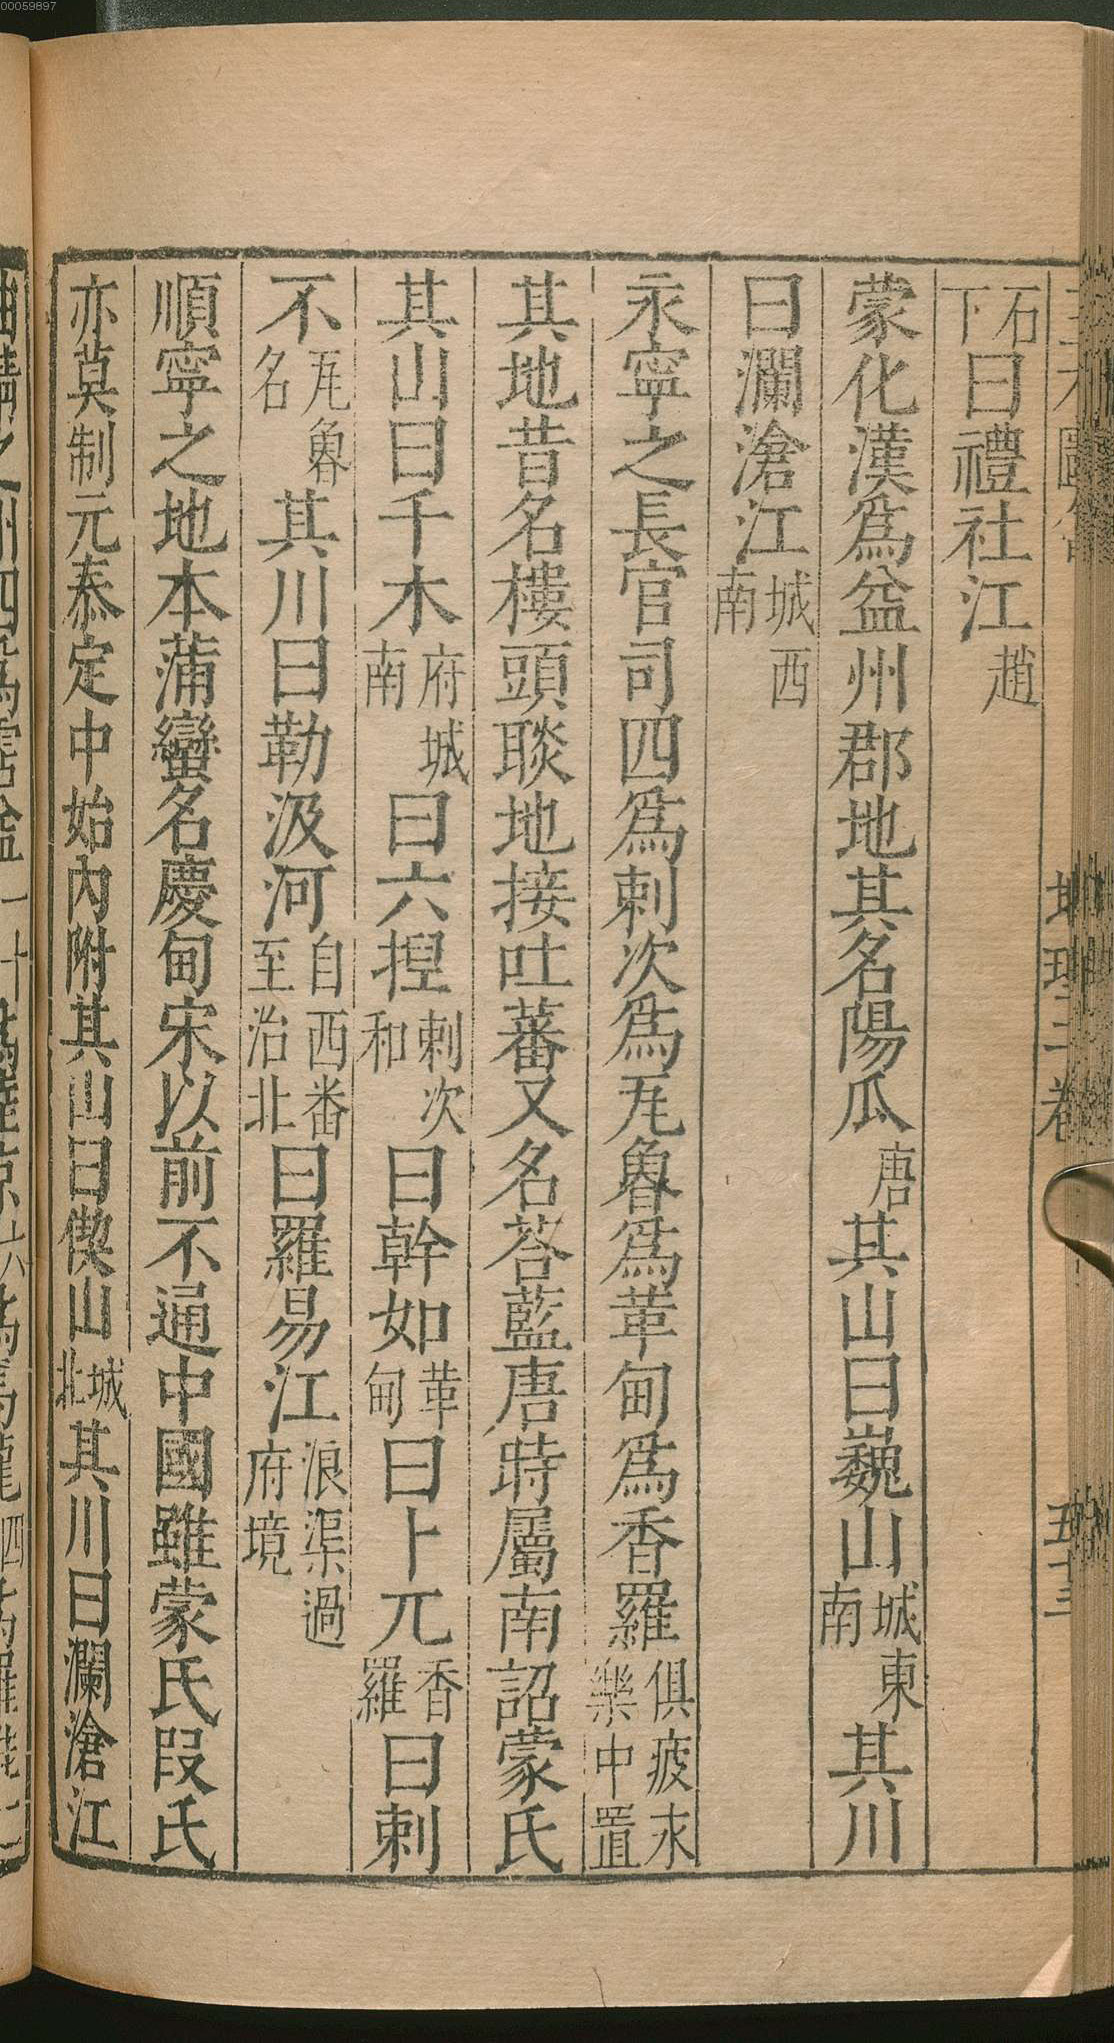 00059897
石下曰禮社江趙
蒙化漢爲益州郡地其名陽瓜唐其山曰巍山城東南其川
曰瀾滄江城西南
永寧之長官司四爲剌次爲瓦魯爲革甸爲香羅俱疲末樂中置
其地昔名樓頭賧地接吐蕃又名荅藍唐時屬南詔蒙氏
其山曰千木府城南曰六揑剌次和曰幹如革甸曰卜兀香羅曰剌
不瓦魯名其川曰勒汲河自西番至治北曰羅易江浪渠過府境
順寧之地本蒲蠻名慶甸宋以前不通中國雖蒙氏叚氏
亦莫制元泰定中始內附其山曰儝山城北其川曰瀾滄江